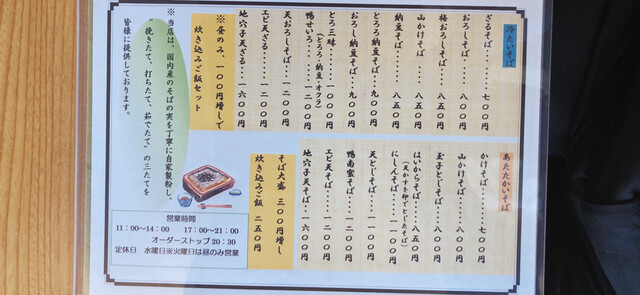 冷たいそば
ざるそば・・・七〇〇円
おろしそば・・・八五〇円
梅おろしそば・・・八五〇円
山かけそば・・・八五〇円
納豆そば・・・八五〇円
とろろ納豆そば・・・九〇〇円
おろし納豆そば・・・九〇〇円
とろ三昧・・・一〇〇〇円
（とろろ・納豆・オクラ）
鴨せいろ・・・一三〇〇円
天おろしそば・・・一二〇〇円
エビ天ざる・・・一二〇〇円
地穴子天ざる・・・一六〇〇円
※昼のみ、一〇〇円増しで
炊き込みご飯セット
※当店は、国内産のそばの実を丁寧に自家製粉し、
〝挽きたて、打ちたて、茹でたて〟の三たてを
皆様に提供しております。
あたたかいそば
かけそば・・・七〇〇円
山かけそば・・・八〇〇円
玉子とじそば・・・八〇〇円
はいからそば・・・八五〇円
（天かすを卵でとじたそば）
にしんそば・・・一〇〇〇円
天とじそば・・・一一〇〇円
鴨南蛮そば・・・一三〇〇円
エビ天そば・・・一二〇〇円
地穴子天そば・・・一六〇〇円
そば大盛 三〇〇円増し
炊き込みご飯 二五〇円
営業時間
11：00～14：00 17：00～21：00
オーダーストップ 20：30
定休日 水曜日※火曜日は昼のみ営業